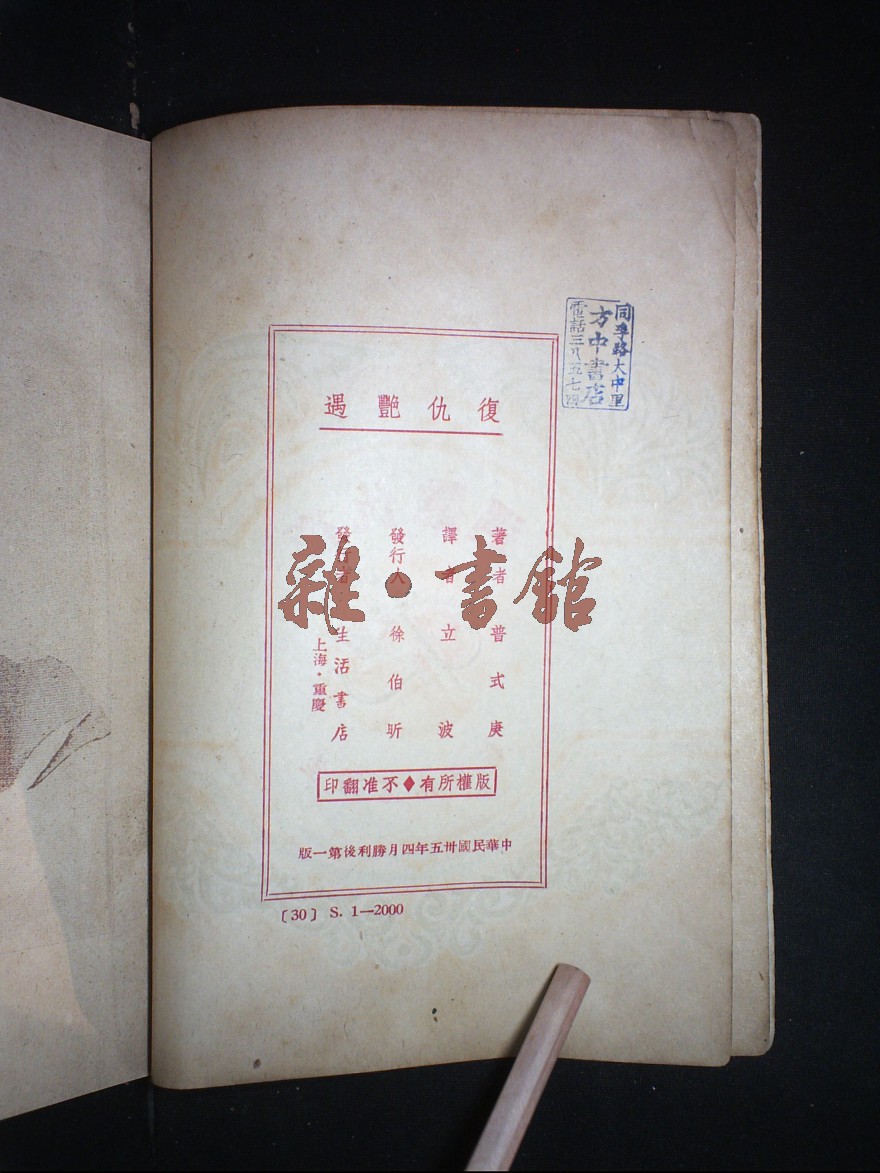 復仇艷遇
著者 普式庚
譯者 立波
發行人 徐伯昕
發行者 生活書店
上海・重慶
版權所有♦不准翻印
中華民國卅五年四月勝利後第一版
〔30〕 S. 1—2000
同孚路大中里
方中書店
電話三八五七四
雜・書館